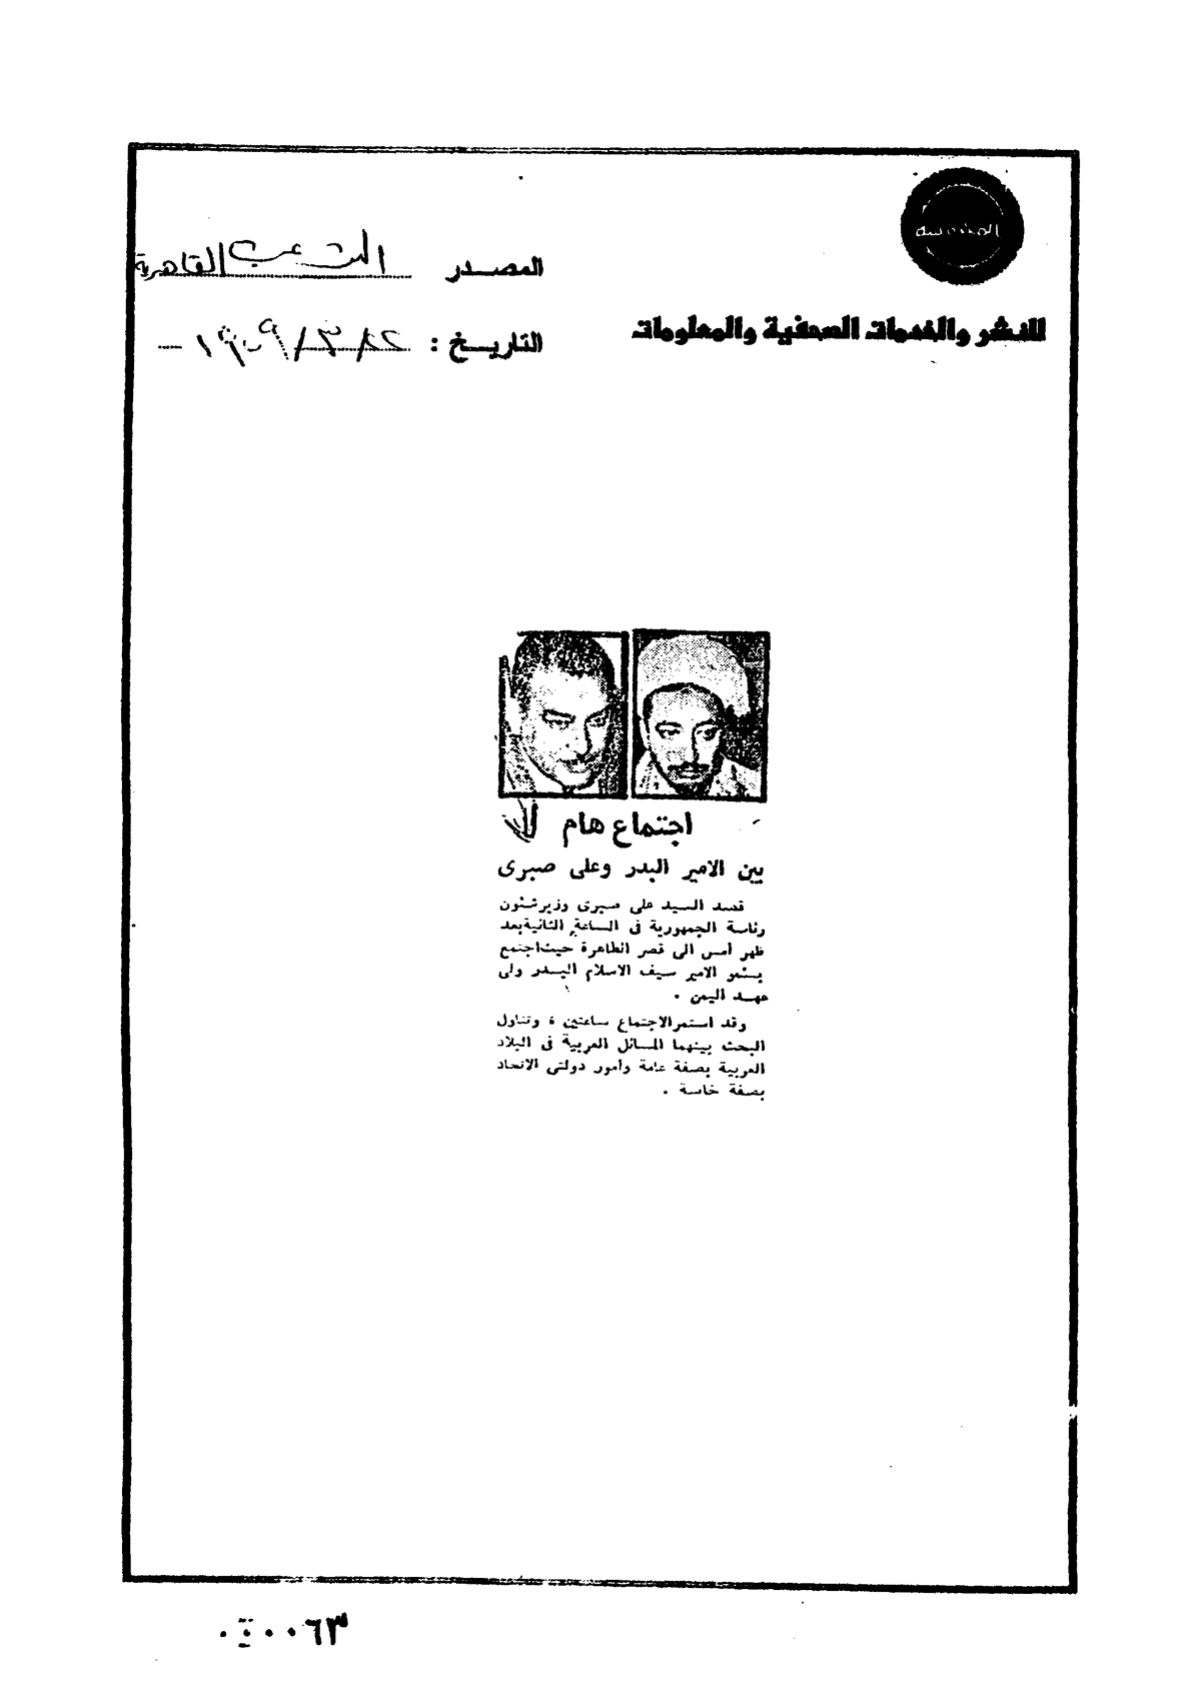 المحروسة
المصدر الشعب القاهرية
للنشر والخدمات الصحفية والمعلومات
التاريخ :
اجتماع هام
بين الامير البدر وعلى صبرى
قصد السيد على صبرى وزير شئون
رئاسة الجمهورية فى الساعة الثانية بعد
ظهر أمس الى قصر الطاهرة حيث اجتمع
بسمو الامير سيف الاسلام البدر ولى
عهد اليمن .
وقد استمر الاجتماع ساعتين ، وتناول
البحث بينهما المسائل العربية فى البلاد
العربية بصفة عامة وأمور دولتى الاتحاد
بصفة خاصة .